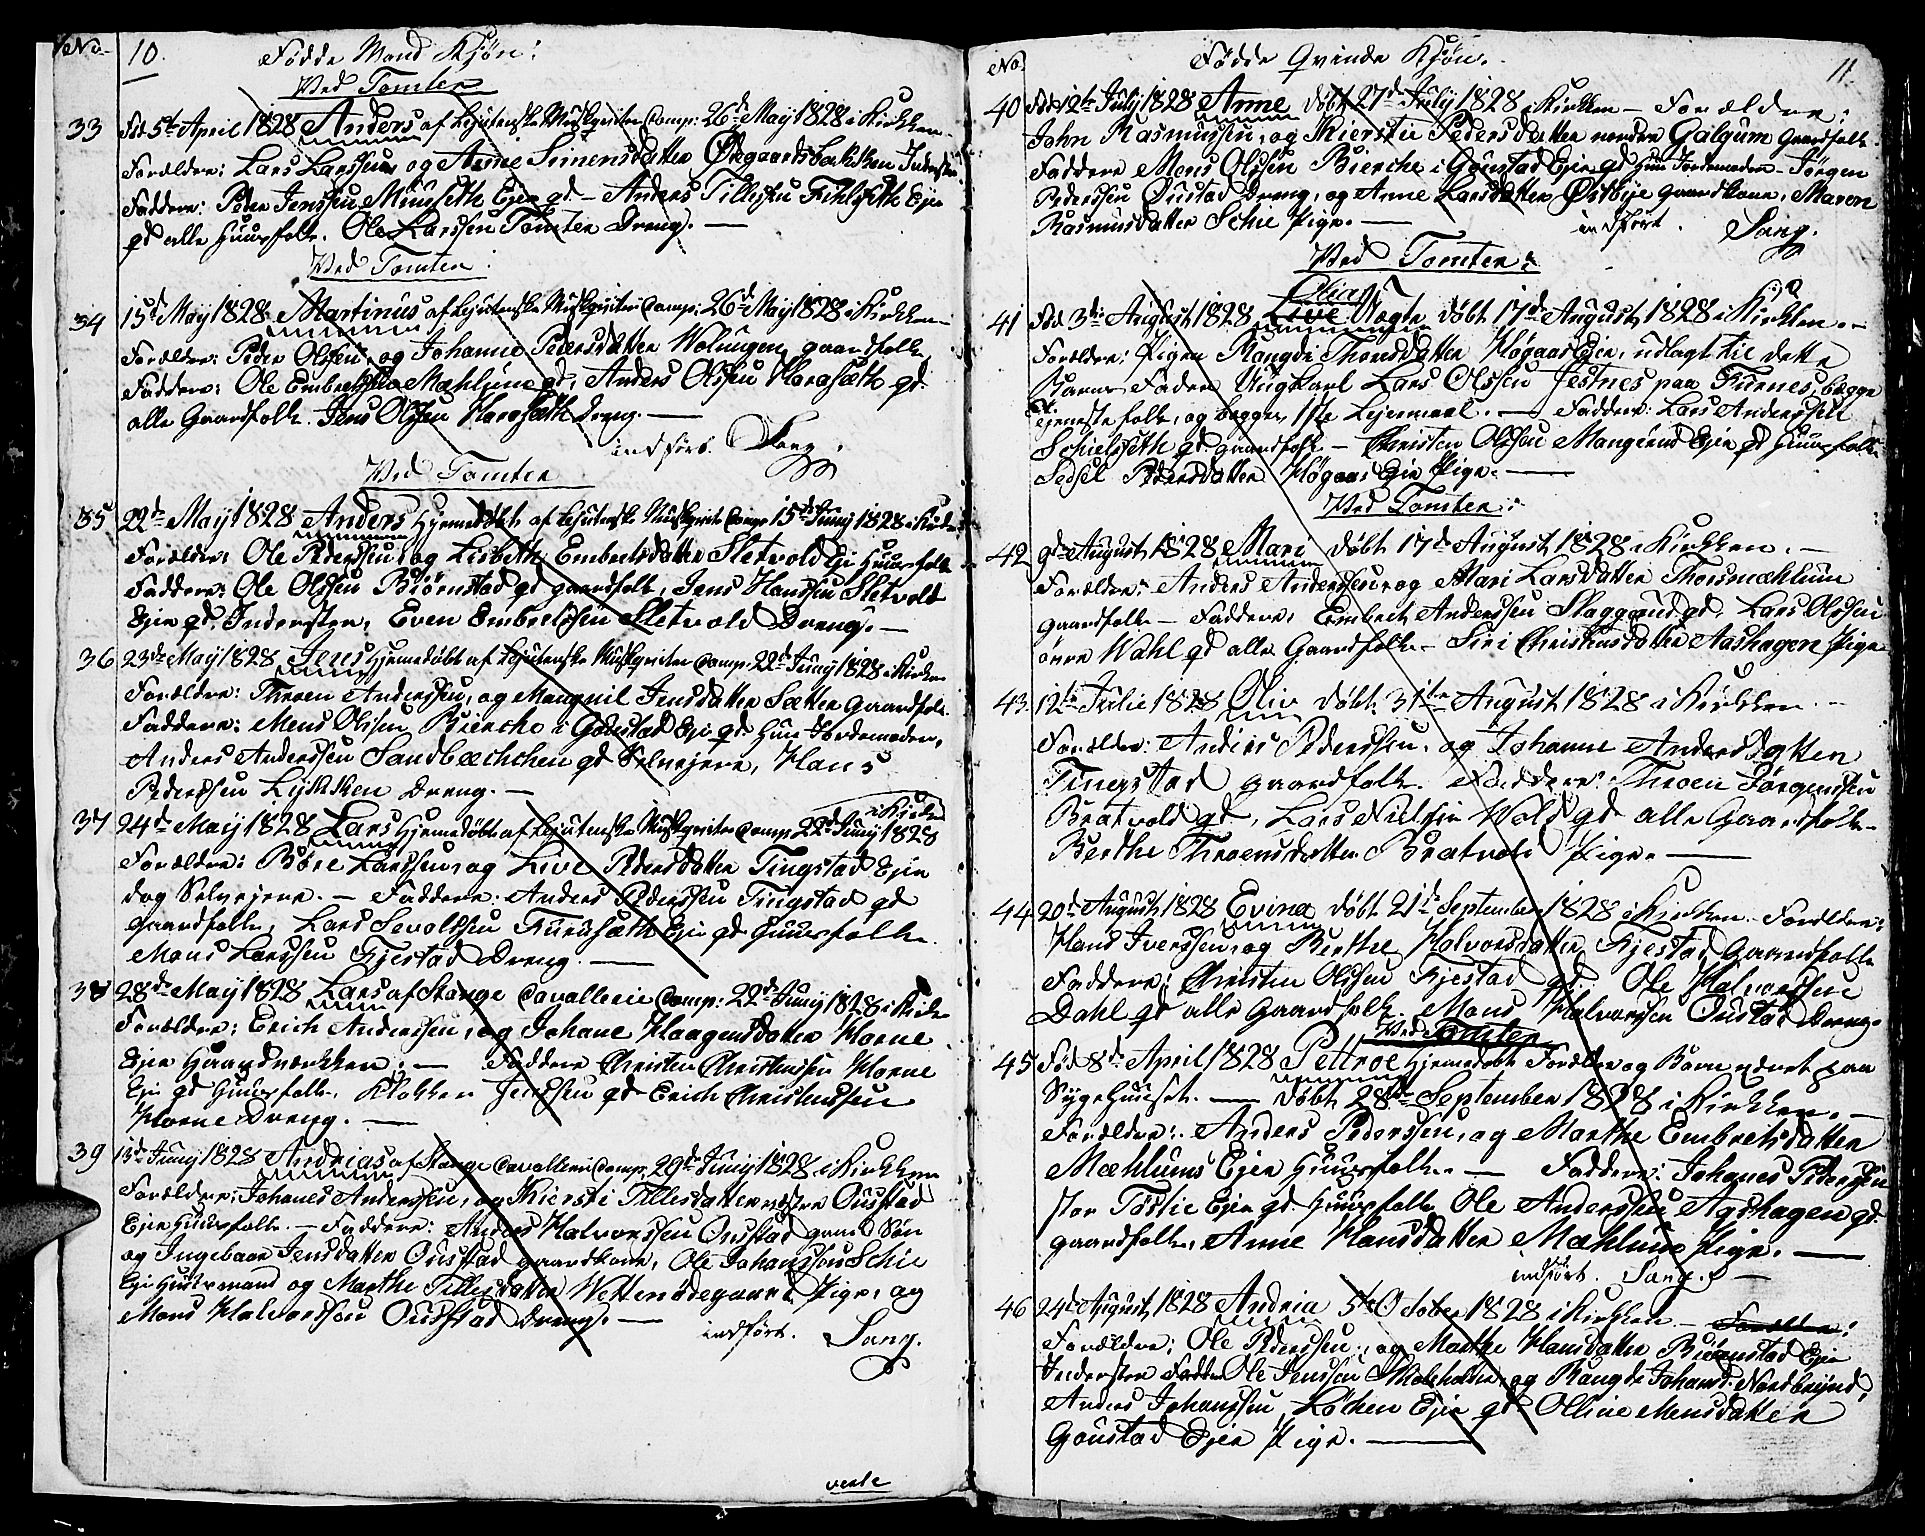 No 10. Fødde Mand Kjøn:
Ved Tomten
33 Fød 5te April 1828 Anders af Lejutenske Muskeriter Comp: 26de May 1828 i Kirken
Forældre: Lars Larssen og Anne Simensdatter Ødegaardsbakken Inderster
Faddere: Peder Jenssen Mûuseth Ejer gd – Anders Tillessen Fihlseth Eje
gd alle Huusfolk. Ole Larssen Tomten Dreng. —
Ved Tomten.
34 15de May 1828 Martinus af Lejutenske Muskeriter Comp: 26de May 1828 i Kirken
Forældre: Peder Olssen, og Johanne Pedersdatter Wolungen gaardfolk
Faddere: Ole Embretssen Mæhlum gd, Anders Olssen Harasæth gd
alle Gaardfolk. Jens Olssen Harasæth Dreng. —
indført. Sang.
Ved Tomten
35 22de May 1828 Anders Hjemedøbt af Lejutenske Muskeriter Comp 15de Juny 1828 i Kirken
Forældre: Ole Pederssen og Lisbeth Embretsdatter Sletvold Eje Huusfolk
Faddere: Ole Olssen Biørnstad gd gaardfolk, Jens Hanssen Sletvold
Ejer gd Inderster, Even Embretssen Sletvold Dreng. —
36 23de May 1828 Jens Hjemedøbt af Lejutenske Muskeriter Comp: 22de Juny 1828 i Kirken
Forældre: Throen Anderssen, og Mangnil Jensdatter Sætter Gaardfolk
Faddere: Mons Olssen Bierche i Gaustad Eje gd hun Jordemoder,
Anders Anderssen Sandbæchchen gd Selvejere, Hans
Pederssen Lykken Dreng. —
i Kirken
37 24de May 1828 Lars Hjemedøbt af Lejutenske Muskeriter Comp 22de Juny 1828
Forældre: Børe Larssen og Live Pedersdatter Tingstad Ejer
dog Selvejere. — Faddere: Anders Pederssen Tingstad gd
gaardfolk, Lars Sevoldsen Furusæth Eje gd Huusfolk.
Mons Larssen Fjestad Dreng. —
38 28de May 1828 Lars af Stange Cavallerie Comp: 22de Juny 1828 i Kirken
Forældre: Erich Anderssen, og Johane Haagensdatter Horne
Ejer Haandværker. — Faddere Christen Christenssen Horne
Eje gd Huusfolk, Klokker Jenssen gd Erich Christenssen
Horne Dreng. —
39 13de Juny 1828 Andrias af Stange Cavalleri Comp 29de Juny 1828 i Kirken
Forældre: Johanes Anderssen, og Kiersti Tillesdatter østre Oustad
Ejer Huusfolk. — Faddere: Anders Halvorssen Oustad gaard Søn
og Ingebaar Jensdatter Oustad gaardkone, Ole Johanssen Schie
Eje Huusmand og Marthe Tillesdatter Wettenødegaard Pige, og
Mons Halvorssen Oustad Dreng. —
indført. Sang.
verte
No Fødde Qvinde Kjøn. 11.
40 Fød 12te July 1828 Anne døbt 27de July 1828 i Kirken — Forældre:
John Rasmussen, og Kiersti Pedersdatter nordre Galgum Gaardfolk.
Faddere Mons Olssen Bierche i Gaustad Eje gd hun Jordemoder – Jørgen
Pederssen Oustad Dreng, og Anne Larsdatter Østbye gaardkone, Maren
Rasmusdatter Schie Pige. — indført. Sang.
Ved Tomten:
Olia
41 Fød 3die August 1828 Live Uægte døbt 17de August 1828 i Kirken. —
Forældre: Pigen Rangdi Thorsdatter Høgaas Eje, udlagt til dette
Barns Fader Ungkarl Lars Olssen Jestnes paa Furnes, begge
tjenestefolk, og begges 1ste Lejermaal. — Faddere: Lars Anderssen
Schielseth gd gaardfolk — Christen Olssen Mangerud Eje gd Huusfolk
Sedsel Pedersdatter Høgaas Eje Pige. —
Ved Tomten:
42 9de August 1828 Mari døbt 17de August 1828 i Kirken. —
Forældre: Anders Anderssen og Mari Larsdatter Thorsmæhlum
gaardfolk — Faddere: Embret Anderssen Skaggerud gd, Lars Olssen
øvre Wahl gd alle Gaardfolk – Siri Christensdatter Aashagen Pige
43 12te Julie 1828 Oliv døbt 31te August 1828 i Kirken. —
Forældre: Anders Pederssen, og Johanne Andersdatter
Tingstad gaardfolk. Faddere: Throen Jørgenssen
Bratvold gd, Lars Nielsen Wold gd alle Gaardfolk —
Berthe Throensdatter Bratvold Pige. —
44 20de August 1828 Evina døbt 21de September 1828 i Kirken. Forældre:
Hans Iverssen og Berthe Halvorsdatter Fjestad Gaardfolk
Faddere: Christen Olssen Fjestad gd Ole Halvorssen
Dahl gd alle Gaardfolk. Mons Halvorssen Oustad Dreng.
Ved Tomten
45 Fød 8de April 1828 Pettroe Hjemedøbt Forældre og Barn været paa
Sygehuuset. — døbt 28de September 1828 i Kirken. —
Forældre: Anders Pederssen, og Marthe Embretsdatter
Mæhlums Ejer Huusfolk. — Faddere: Johanes Pedersen
stor Toslie Eje gd Huusfolk Ole Anderssen Aashagen gd
gaardfolk, Anne Hansdatter Mæhlum Pige. —
indført. Sang. —
46 24de August 1828 Andria 5te October 1828 i Kirken — Forældre:
Forældre: Ole Pederssen, og Marthe Hansdatter Biørnstad Eje
Inderster Fadder Ole Jenssen og Rangdi Johansd: Nordbrynd,
Anders Johanssen Løken Eje gd Olline Monsdatter
Gaustad Eje Pige. —